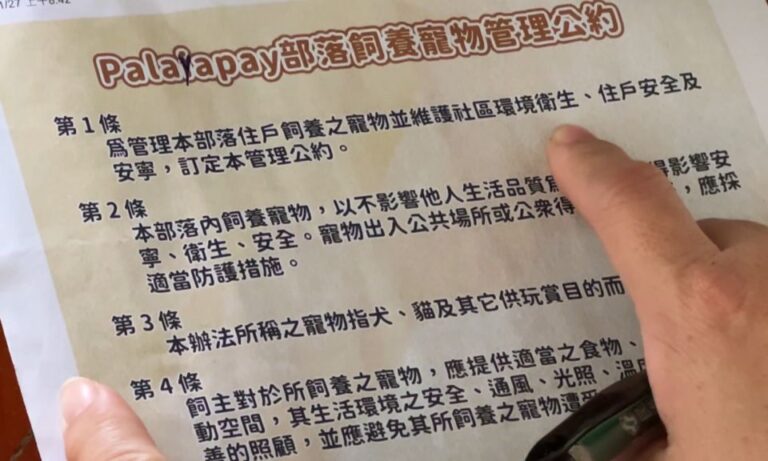 1/27 上午8:42
Palayapay部落飼養寵物管理公約
第1條
為管理本部落住戶飼養之寵物並維護社區環境衛生、住戶安全及
安寧，訂定本管理公約。
第2條
本部落內飼養寵物，以不影響他人生活品質 得影響安
寧、衛生、安全。寵物出入公共場所或公眾得 ，應採
適當防護措施。
第3條
本辦法所稱之寵物指犬、貓及其它供玩賞目的而
第4條
飼主對於所飼養之寵物，應提供適當之食物、
動空間，其生活環境之安全、通風、光照、溫
善的照顧，並應避免其所飼養之寵物遭受